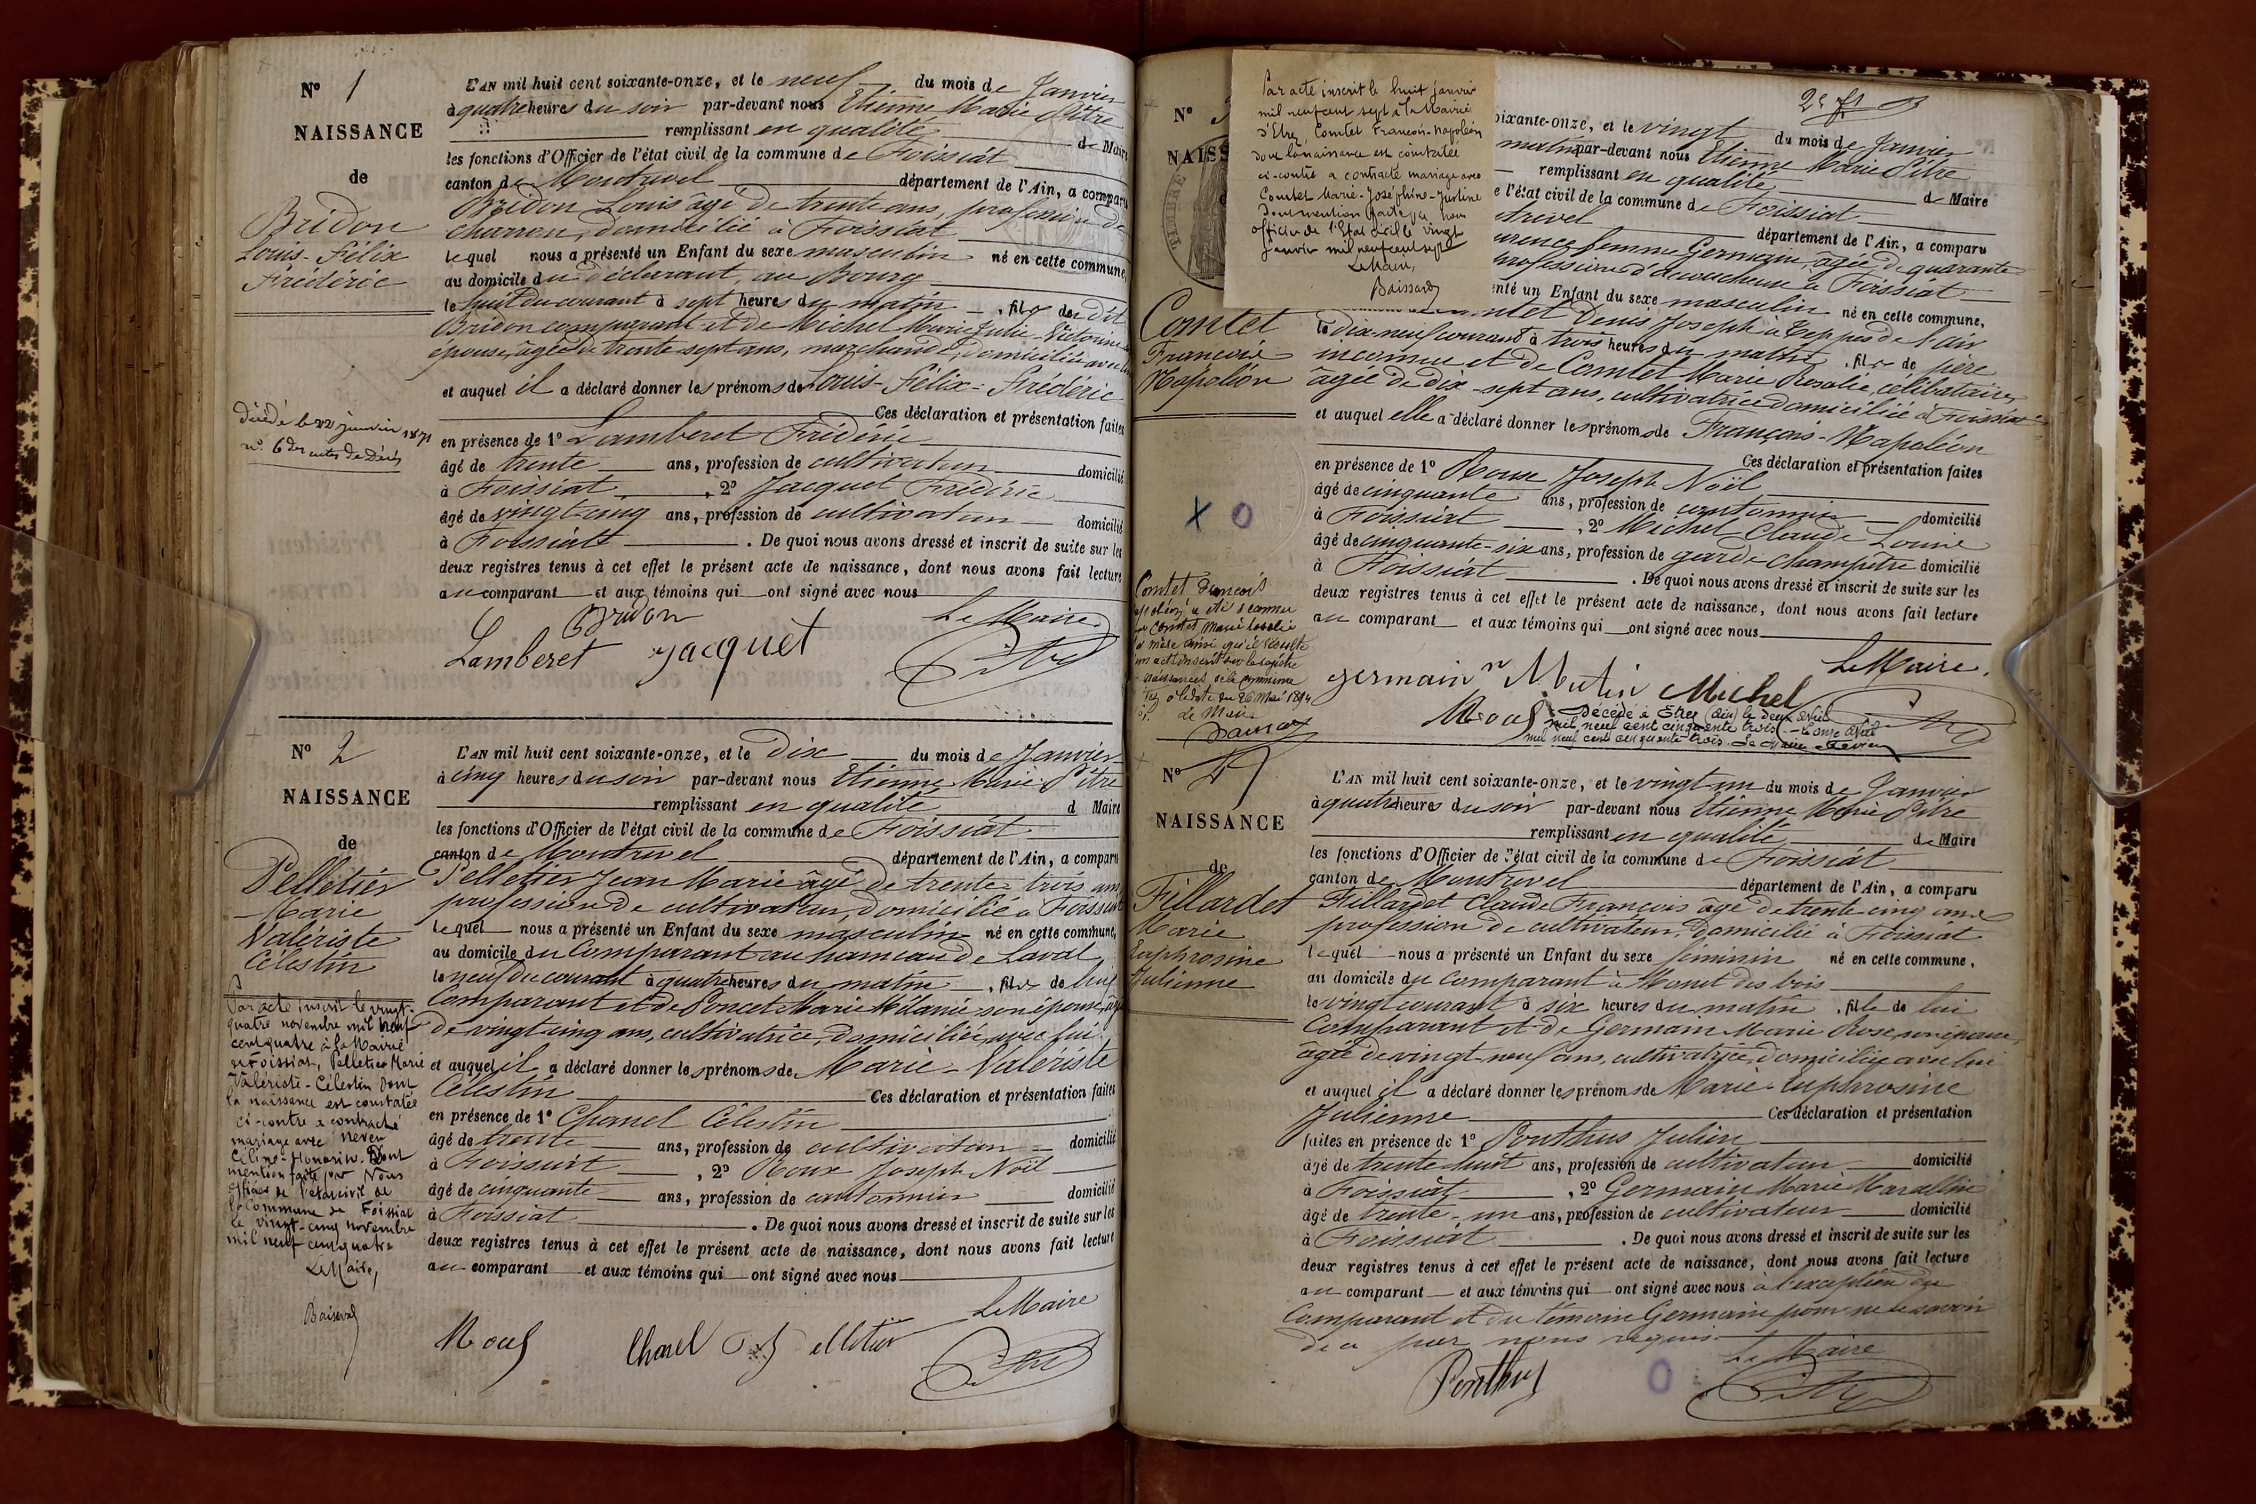 N° 1
NAISSANCE
de
Bridon
Louis-Félix
Frédéric
Décédé le 22 janvier 1871
n° 6 des actes de Décès
L'AN mil huit cent soixante-onze, et le neuf du mois de Janvier
à quatre heures du soir par-devant nous Etienne Marie Pitre
remplissant en qualité de Maire
les fonctions d'Officier de l'état civil de la commune de Foissiat
canton de Montrevel département de l'Ain, a comparu
Bridon Louis âgé de trente ans, profession de
charron, domicilié à Foissiat
lequel nous a présenté un Enfant du sexe masculin né en cette commune,
au domicile du déclarant, au Bourg
le huit du courant à sept heures du matin, fils du dit
Bridon comparant et de Michel Marie Julie Victorine
épouse, âgée de trente-sept ans, marchande, domiciliée avec lui
et auquel il a déclaré donner les prénoms de Louis-Félix-Frédéric
Ces déclaration et présentation faites
en présence de 1° Lamberet Frédéric
âgé de trente ans, profession de cultivateur domicilié
à Foissiat, 2° Jacquet Frédéric
âgé de vingt-cinq ans, profession de cultivateur domicilié
à Foissiat. De quoi nous avons dressé et inscrit de suite sur les
deux registres tenus à cet effet le présent acte de naissance, dont nous avons fait lecture
au comparant et aux témoins qui ont signé avec nous
Bridon Le Maire
Lamberet Jacquet Pitre
N° 2
NAISSANCE
de
Pelletier
Marie
Valériste
Célestin
Par acte inscrit le vingt-
quatre novembre mil neuf
cent quatre à la Mairie
de Foissiat, Pelletier Marie
Valériste-Célestin dont
la naissance est constatée
ci-contre a contracté
mariage avec Neveu
Céline-Honorine. Dont
mention faite par Nous
officier de l'état civil de
la commune de Foissiat
le vingt-cinq novembre
mil neuf cent quatre
Le Maire,
L'AN mil huit cent soixante-onze, et le Dix du mois de Janvier
à cinq heures du soir par-devant nous Etienne Marie Pitre
remplissant en qualité d Maire
les fonctions d'Officier de l'état civil de la commune de Foissiat
canton de Montrevel département de l'Ain, a comparu
Pelletier Jean Marie âgé de trente-trois ans
profession de cultivateur, domicilié à Foissiat
lequel nous a présenté un Enfant du sexe masculin né en cette commune,
au domicile du Comparant au hameau de Laval
le neuf du courant à quatre heures du matin, fils de lui
Comparant et de Poncet Marie Mélanie son épouse, âgée
de vingt-cinq ans, cultivatrice, domiciliée avec lui
et auquel il a déclaré donner les prénoms de Marie-Valériste
Célestin Ces déclaration et présentation faites
en présence de 1° Chanel Célestin
âgé de trente ans, profession de cultivateur domicilié
à Foissiat, 2° Roux Joseph Noël
âgé de cinquante ans, profession de cantonnier domicilié
à Foissiat. De quoi nous avons dressé et inscrit de suite sur les
deux registres tenus à cet effet le présent acte de naissance, dont nous avons fait lecture
au comparant et aux témoins qui ont signé avec nous
Le Maire
Roux Chanel Pelletier Pitre
Par acte inscrit le huit janvier
mil neuf cent sept à la Mairie
d'Etrez, Comtet François-Napoléon
dont la naissance est constatée
ci-contre a contracté mariage avec
Comtet Marie-Joséphine-Justine
Dont mention faite par nous
officier de l'Etat civil le vingt
janvier mil neuf cent sept
Le Maire,
N°
NAISS
Comtet
François
Napoléon
X O
Comtet François
Napoléon a été reconnu
par Comtet Marie Rosalie
sa mère ainsi qu'il résulte
acte inscrit sur le registre
naissances de la commune
à la date du 26 Mai 1894
Le Maire
soixante-onze, et le vingt du mois de Janvier
matin par-devant nous Etienne Marie Pitre
remplissant en qualité de Maire
de l'état civil de la commune de Foissiat
trevel département de l'Ain, a comparu
femme Germain, âgée de quarante
profession d'accoucheuse à Foissiat
présenté un Enfant du sexe masculin né en cette commune,
Comtet Denis Joseph à Teppes de l'air
le dix-neuf courant à trois heures du matin, fils de père
inconnu et de Comtet Marie Rosalie, célibataire,
âgée de dix-sept ans, cultivatrice domiciliée à Foissiat
et auquel elle a déclaré donner les prénoms de François-Napoléon
Ces déclaration et présentation faites
en présence de 1° Roux Joseph Noël
âgé de cinquante ans, profession de cantonnier domicilié
à Foissiat, 2° Michel Claude Louis
âgé de cinquante-six ans, profession de garde-champêtre domicilié
à Foissiat. De quoi nous avons dressé et inscrit de suite sur les
deux registres tenus à cet effet le présent acte de naissance, dont nous avons fait lecture
au comparant et aux témoins qui ont signé avec nous
Le Maire
germain n Mutin Michel
Roux Pitre
Décédé à Etrez (Ain) le deux avril
mil neuf cent cinquante trois. Le onze avril
mil neuf cent cinquante trois. Le Maire
N° 4
NAISSANCE
de
Fillardet
Marie
Euphrosine
Julienne
L'AN mil huit cent soixante-onze, et le vingt un du mois de Janvier
à quatre heures du soir par-devant nous Etienne Marie Pitre
remplissant en qualité de Maire
les fonctions d'Officier de l'état civil de la commune de Foissiat
canton de Montrevel département de l'Ain, a comparu
Fillardet Claude François âgé de trente-cinq ans
profession de cultivateur, domicilié à Foissiat
lequel nous a présenté un Enfant du sexe féminin né en cette commune,
au domicile du comparant à Monet des bois
le vingt courant à six heures du matin, fille de lui
Comparant et de Germain Marie Rose, son épouse,
âgée de vingt-neuf ans, cultivatrice, domiciliée avec lui
et auquel il a déclaré donner les prénoms de Marie-Euphrosine
Julienne Ces déclaration et présentation
faites en présence de 1° Ponthus Julien
âgé de trente-huit ans, profession de cultivateur domicilié
à Foissiat, 2° Germain Marie
âgé de trente-un ans, profession de cultivateur domicilié
à Foissiat. De quoi nous avons dressé et inscrit de suite sur les
deux registres tenus à cet effet le présent acte de naissance, dont nous avons fait lecture
au comparant et aux témoins qui ont signé avec nous à l'exception du
Comparant et du témoin Germain pour ne le savoir
de ce par nous requis
Le Maire
Ponthus O Pitre